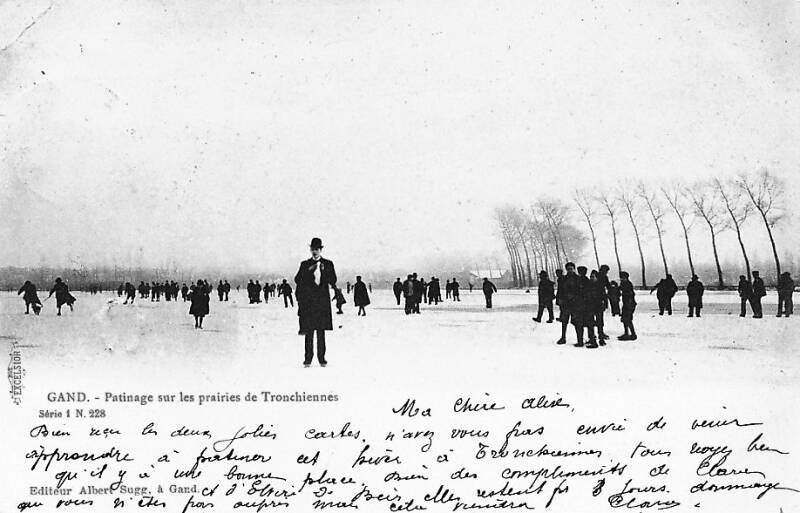 EXCELSIOR
GAND. - Patinage sur les prairies de Tronchiennes
Série 1 N. 228
Ma chère Alise,
Bien reçu les deux jolies cartes, n'avez vous pas envie de venir
apprendre à patiner cet hiver à Tronchiennes vous voyez bien
qu'il y à une bonne place. Bien des compliments de Clara
Editeur Albert Sugg, à Gand.
et d'Elvire elles restent 8 jours. dommage
que vous n'êtes pas auprès mais cela viendra Clara